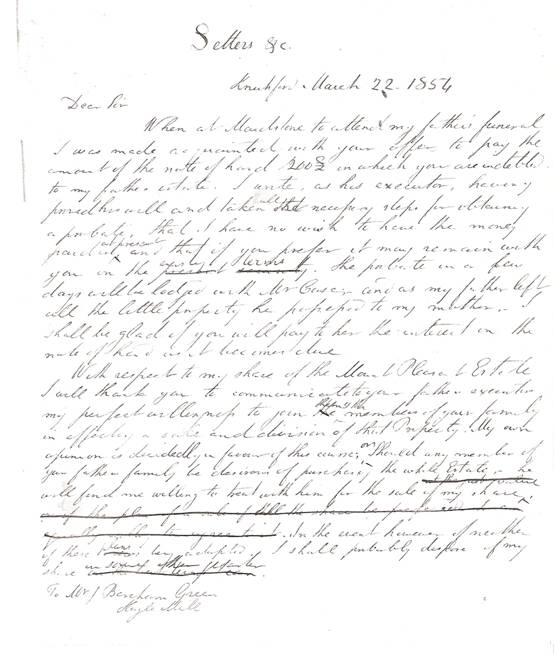 Letters &c.
Knutsford March 22. 1854
Dear Sir
When at Maidstone to attend my father's funeral
I was made acquainted with your offer to pay the
amount of the note of hand 200£ in which you are indebted
to my father's estate. I write, as his executor, having
proved his will and taken all the necessary steps for obtaining
a probate, that I have no wish to have the money
paid in at present and that if you prefer it may remain with
you on the existing terms present security. The probate in a few
days will be lodged with Mr Case and as my father left
all the little property he possessed to my mother, I
shall be glad if you will pay to her the interest on the
note of hand as it becomes due
With respect to my share of the Mount Pleasant Estate
I will thank you to communicate to your father's executors
my perfect willingness to join the members of your family
in effecting a sale and division of that Property. My own
opinion is decidedly in favour of this course, or should any member of
your father's family be desirous of purchasing the whole Estate, he
will find me willing to treat with him for the sale of my share
In the event however of neither
of these plans being adopted, I shall probably dispose of my
share
To Mr J Barcham Green
Hayle Mill